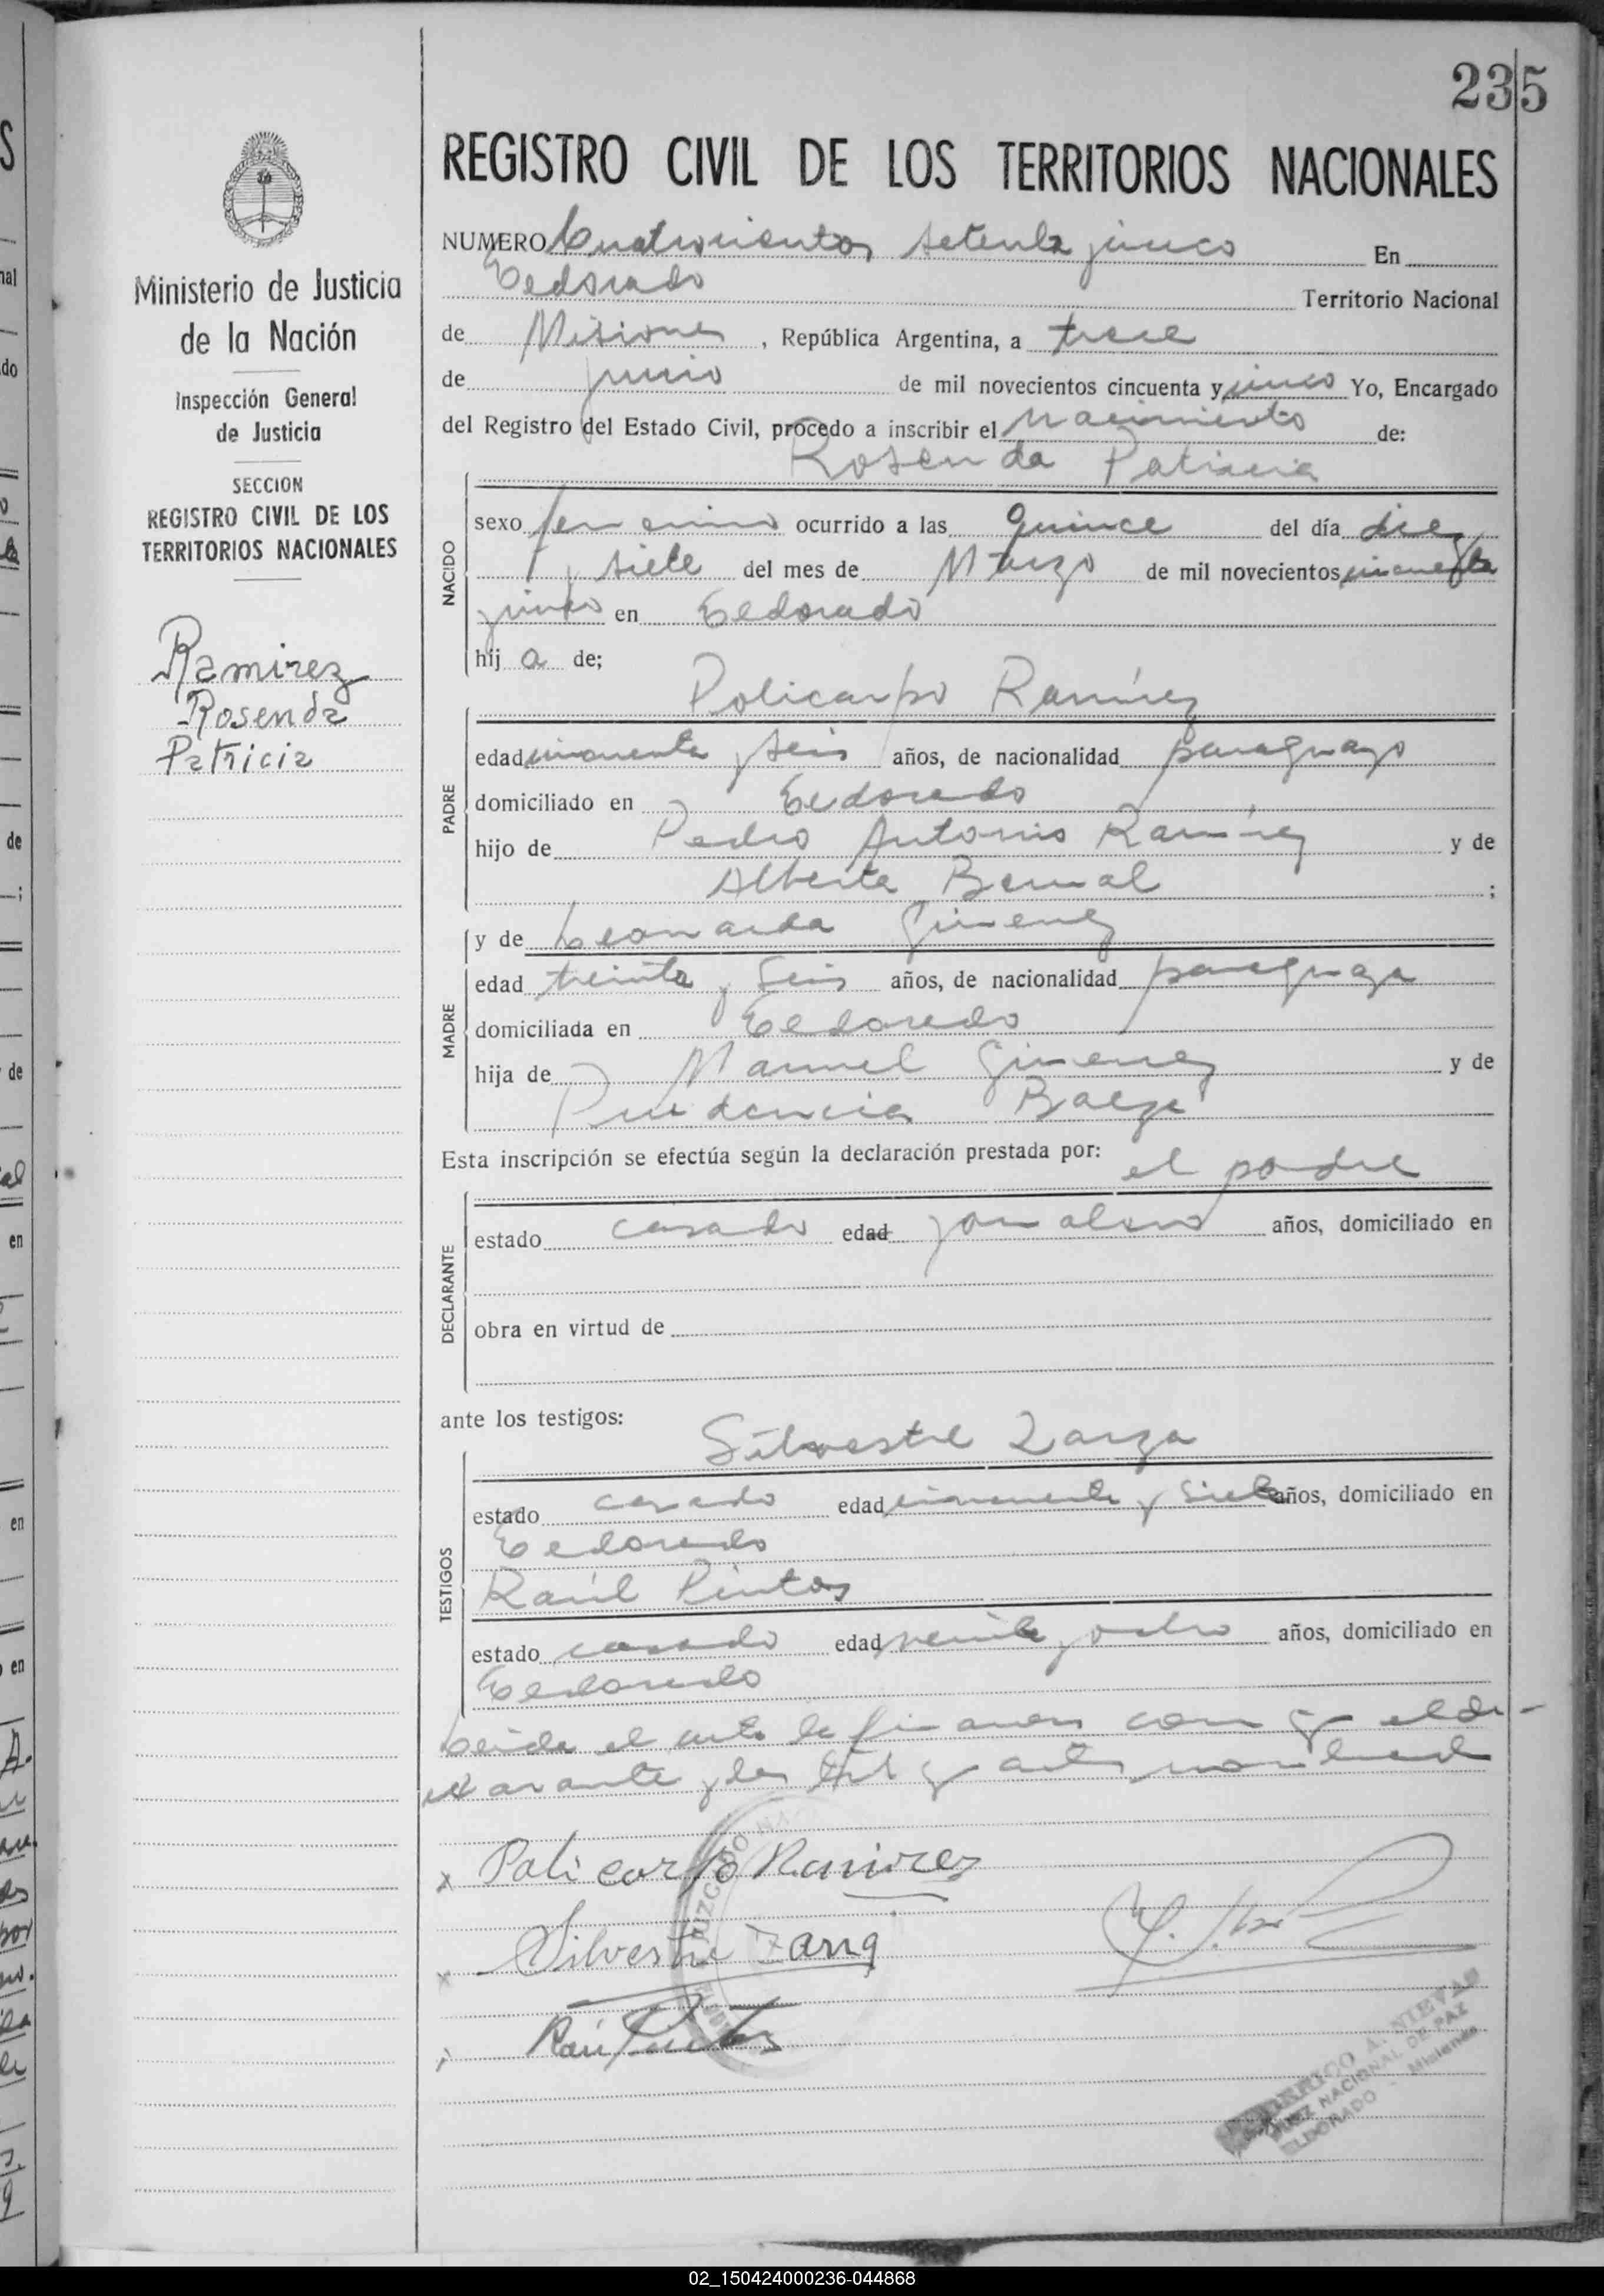 235
REGISTRO CIVIL DE LOS TERRITORIOS NACIONALES
Ministerio de Justicia
de la Nación
Inspección General
de Justicia
SECCION
REGISTRO CIVIL DE LOS
TERRITORIOS NACIONALES
Ramirez
Rosenda
Patricia
NUMERO Cuatrocientos setenta y cinco En
Eldorado Territorio Nacional
de Misiones, República Argentina, a trece
de junio de mil novecientos cincuenta y cinco Yo, Encargado
del Registro del Estado Civil, procedo a inscribir el nacimiento de:
Rosenda Patricia
NACIDO
sexo femenino ocurrido a las quince del día diez
y siete del mes de Marzo de mil novecientos cincuenta
y cinco en Eldorado
hij a de;
Policarpo Ramírez
PADRE
edad cincuenta y seis años, de nacionalidad paraguayo
domiciliado en Eldorado
hijo de Pedro Antonio Ramírez y de
Alberta Bernal ;
y de Leonarda Gimenez
MADRE
edad treinta y seis años, de nacionalidad paraguaya
domiciliada en Eldorado
hija de Manuel Gimenez y de
Prudencia Baez
Esta inscripción se efectúa según la declaración prestada por: el padre
DECLARANTE
estado casado edad jornalero años, domiciliado en
obra en virtud de
ante los testigos:
Silvestre Zarza
TESTIGOS
estado casado edad cincuenta y siete años, domiciliado en
Eldorado
Raúl Pintos
estado casado edad veinte y ocho años, domiciliado en
Eldorado
Leida el acta la firman con el de-
clarante y los
x Policarpo Ramirez
x Silvestre Zarza
Raúl Pintos
JUZGADO NA
A. NIEVAS
JUEZ NACIONAL DE PAZ
ELDORADO - Misiones
02_150424000236-044868